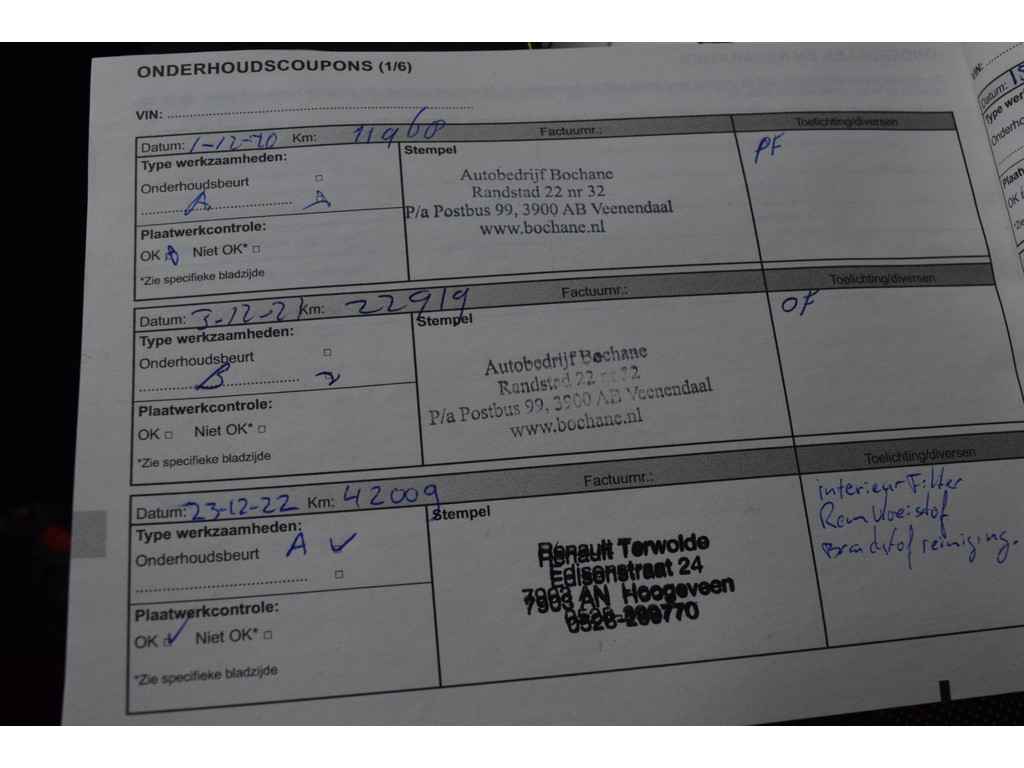 ONDERHOUDSCOUPONS (1/6)
VIN:
Datum: 1-12-20 Km: 11960 Factuurnr.: Toelichting/diversen
Type werkzaamheden: Stempel PF
Onderhoudsbeurt
A A
Autobedrijf Bochane
Randstad 22 nr 32
P/a Postbus 99, 3900 AB Veenendaal
www.bochane.nl
Plaatwerkcontrole:
OK Niet OK*
*Zie specifieke bladzijde
Datum: 3-12-21 Km: 22919 Factuurnr.: Toelichting/diversen
Type werkzaamheden: Stempel OF
Onderhoudsbeurt
B
Autobedrijf Bochane
Randstad 22 nr 32
P/a Postbus 99, 3900 AB Veenendaal
www.bochane.nl
Plaatwerkcontrole:
OK Niet OK*
*Zie specifieke bladzijde
Datum: 23-12-22 Km: 42009 Factuurnr.: Toelichting/diversen
Type werkzaamheden: Stempel
Onderhoudsbeurt A
interieur Filter
Remvloeistof
Brandstof reiniging.
Renault Terwolde
Edisonstraat 24
7903 AN Hoogeveen
Plaatwerkcontrole:
OK Niet OK*
*Zie specifieke bladzijde
VIN:
Datum: